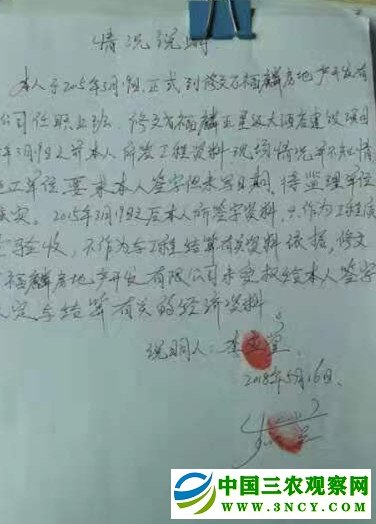 情况说明
本人于2015年3月19日,正式到修文石福麟房地产开发有
公司任职上班,修文石福麟五星级大酒店建设项目
年3月19日之前本人所签工程资料现场情况并不知情
工单位要求本人签字但未写日期,待监理单位
核实。2015年3月19日之后本人所签字资料,只作为工程质
量验收,不作为与工程结算有关资料依据,修文
福麟房地产开发有限公司未授权给本人签字
认定与结算有关的经济资料。
说明人:李
2018年5月16日.
中国三农观察网
WWW.3NCY.COM